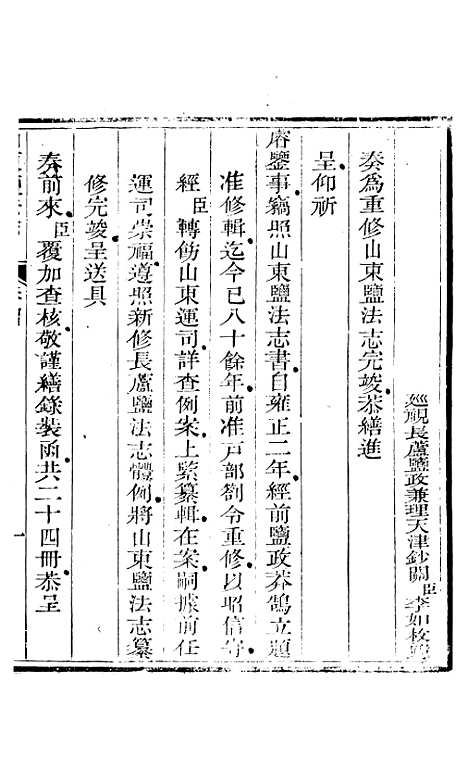 巡視長蘆鹽政兼理天津鈔關臣李如枚
奏爲重修山東鹽法志完竣恭繕進
呈仰祈
睿鑒事竊照山東鹽法志書自雍正二年經前鹽政莽鵠立題
准修輯迄今已八十餘年前准戸部劄令重修以昭信守
經臣轉飭山東運司詳查例案上緊纂輯在案嗣據前任
運司崇福遵照新修長蘆鹽法志體例將山東鹽法志纂
修完竣呈送具
奏前來臣覆加查核敬謹繕錄裝函共二十四冊恭呈
一